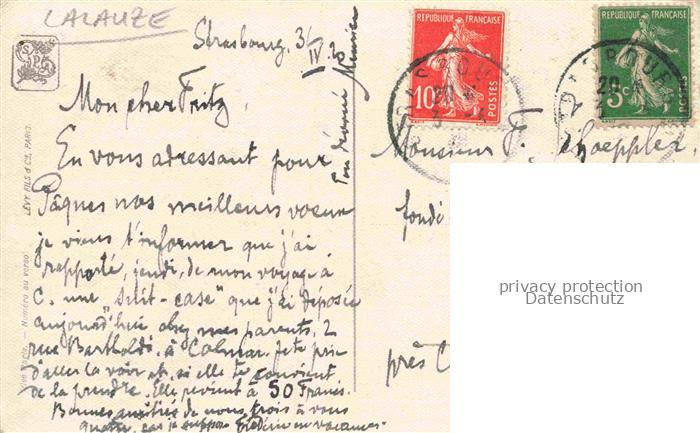 LALAUZE
Strasbourg, 3/IV.20
Mon cher Fritz,
En vous adressant pour
Pâques nos meilleurs voeux
je viens t'informer que j'ai
rapporté, jeudi, de mon voyage à
C. une "suit-case" que j'ai déposée
aujourd'hui chez mes parents, 2
rue Bartholdi, à Colmar. Je te prie
d'aller la voir et, si elle te convient
de la prendre. Elle revient à 50 Francs.
Bonnes amitiés de nous trois à vous
quatre, car je suppose Frédéric en vacances.
Ton dévoué
LÉVY FILS & Cie, PARIS
Numéro au verso
RÉPUBLIQUE FRANÇAISE
10c
POSTES
RÉPUBLIQUE FRANÇAISE
5c
POSTES
Monsieur F. Schoepfler
fondé
près C
privacy protection
Datenschutz